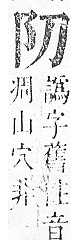 譌字舊注音
凋山穴非